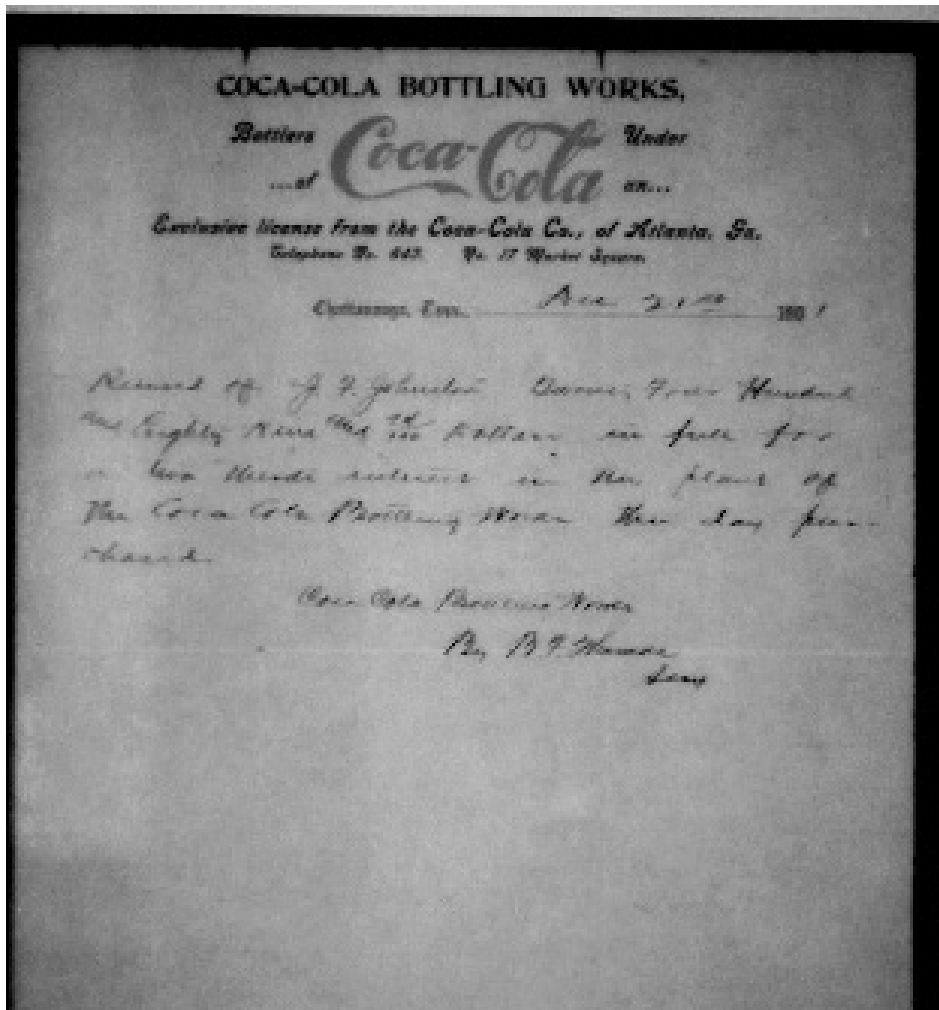 COCA-COLA BOTTLING WORKS,
Bottlers Coca-Cola Under
...of an...
Exclusive license from the Coca-Cola Co., of Atlanta, Ga.
Telephone No. No. 17 Market Square.
Chattanooga, Tenn. Dec 21st 190 1
Received of J F Johnston Four Hundred
and Eighty Nine and Dollars in full for
two thirds interest in the plant of
The Coca Cola Bottling Works this day pur-
chased.
Coca Cola Bottling Works
By B F Thomas
Secy